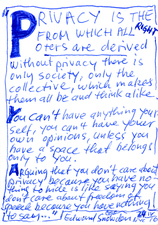 PRIVACY IS THE RIGHT
FROM WHICH ALL
OTERS are derived
without privacy there is
only society, only the
collective, which makes
them all be and think alike.
You can't have anything your
self, you can't have your
own opinions, unless you
have a space that belongs
only to you.
Arguing that you don't care about
privacy because you have no-
thing to hide is like saying you
don't care about freedom of
speech because you have nothing
to say..."
Edward Snowden